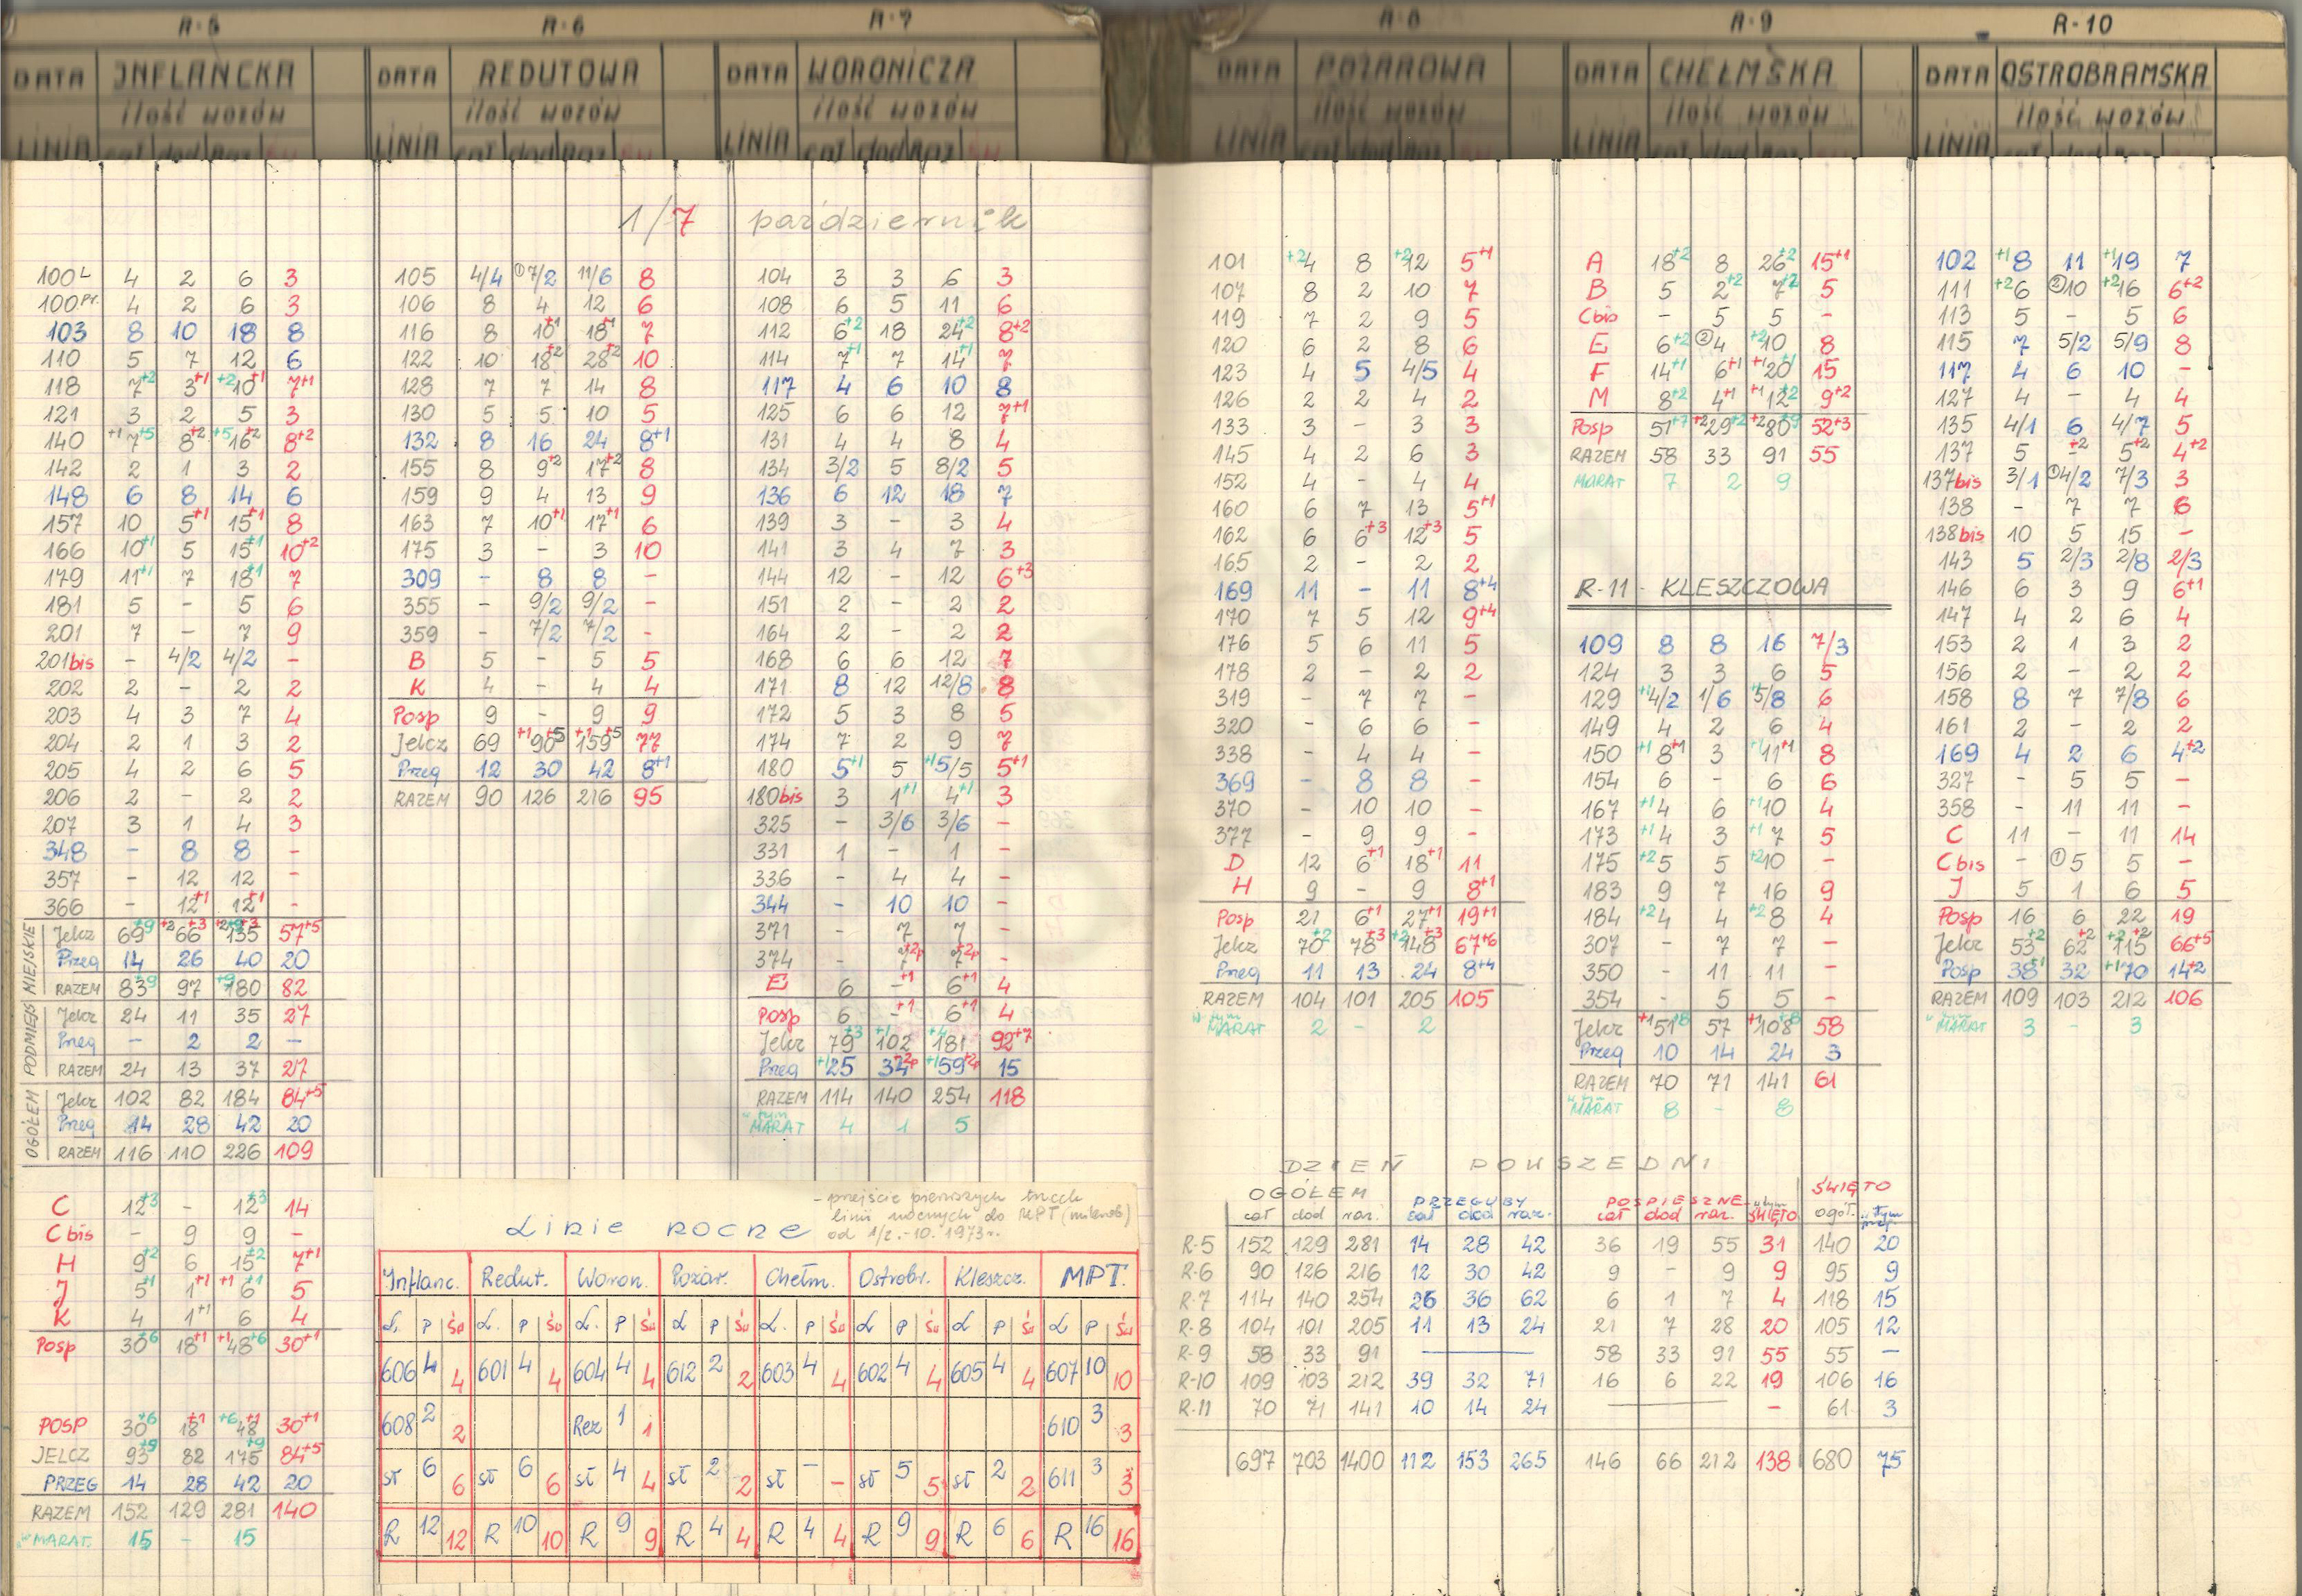 R-5 R-6 R-7 R-8 R-9 R-10
DATA INFLANCKA
ilość wozów
LINIA cał dod Raz
DATA REDUTOWA
ilość wozów
LINIA cał dod Raz
DATA WORONICZA
ilość wozów
LINIA cał dod Raz
DATA POŻAROWA
ilość wozów
LINIA cał dod Raz
DATA CHEŁMSKA
ilość wozów
LINIA cał dod Raz
DATA OSTROBRAMSKA
ilość wozów
LINIA cał dod Raz
1/7 październik
100L 4 2 6 3
100Pr. 4 2 6 3
103 8 10 18 8
110 5 7 12 6
118 7+2 3+1 +2 10+1 7+1
121 3 2 5 3
140 +1 7+5 8+2 +5 16+2 8+2
142 2 1 3 2
148 6 8 14 6
157 10 5+1 15+1 8
166 10+1 5 15+1 10+2
179 11+1 7 18+1 7
181 5 - 5 6
201 7 - 7 9
201bis - 4/2 4/2 -
202 2 - 2 2
203 4 3 7 4
204 2 1 3 2
205 4 2 6 5
206 2 - 2 2
207 3 1 4 3
348 - 8 8 -
357 - 12 12 -
366 - 12+1 12+1 -
MIEJSKIE
Jelcz 69+9 +2 66+3 135 57+5
Przeg 14 26 40 20
RAZEM 83+9 97 +9 180 82
PODMIEJS
Jelcz 24 11 35 27
Przeg - 2 2 -
RAZEM 24 13 37 27
OGÓŁEM
Jelcz 102 82 184 84+5
Przeg 14 28 42 20
RAZEM 116 110 226 109
C 12+3 - 12+3 14
C bis - 9 9 -
H 9+2 6 15+2 7+1
J 5+1 1+1 +1 6+1 5
K 4 1+1 6 4
Posp 30+6 18+1 +1 48+6 30+1
POSP 30+6 18+1 +6 48+1 30+1
JELCZ 93+9 82 175+9 84+5
PRZEG 14 28 42 20
RAZEM 152 129 281 140
MARAT. 15 - 15
105 4/4 ①7/2 11/6 8
106 8 4 12 6
116 8 10+1 18+1 7
122 10 18+2 28+2 10
128 7 7 14 8
130 5 5 10 5
132 8 16 24 8+1
155 8 9+2 17+2 8
159 9 4 13 9
163 7 10+1 17+1 6
175 3 - 3 10
309 - 8 8 -
355 - 9/2 9/2 -
359 - 7/2 7/2 -
B 5 - 5 5
K 4 - 4 4
Posp 9 - 9 9
Jelcz 69 +1 90+5 +1 159+5 77
Przeg 12 30 42 8+1
RAZEM 90 126 216 95
104 3 3 6 3
108 6 5 11 6
112 6+2 18 24+2 8+2
114 7+1 7 14+1 7
117 4 6 10 8
125 6 6 12 7+1
131 4 4 8 4
134 3/2 5 8/2 5
136 6 12 18 7
139 3 - 3 4
141 3 4 7 3
144 12 - 12 6+3
151 2 - 2 2
164 2 - 2 2
168 6 6 12 7
171 8 12 12/8 8
172 5 3 8 5
174 7 2 9 7
180 5+1 5 +1 5/5 5+1
180bis 3 1+1 4+1 3
325 - 3/6 3/6 -
331 1 - 1 -
336 - 4 4 -
344 - 10 10 -
371 - 7 7 -
374 - 7+2p 7+2p -
E 6 -+1 6+1 4
Posp 6 -+1 6+1 4
Jelcz 79+3 +1 102 +4 181 92+7
Przeg +1 25 34+2p +1 59+2p 15
RAZEM 114 140 254 118
w tym
MARAT 4 1 5
101 +2 4 8 +2 12 5+1
107 8 2 10 7
119 7 2 9 5
120 6 2 8 6
123 4 5 4/5 4
126 2 2 4 2
133 3 - 3 3
145 4 2 6 3
152 4 - 4 4
160 6 7 13 5+1
162 6 6+3 12+3 5
165 2 - 2 2
169 11 - 11 8+4
170 7 5 12 9+4
176 5 6 11 5
178 2 - 2 2
319 - 7 7 -
320 - 6 6 -
338 - 4 4 -
369 - 8 8 -
370 - 10 10 -
377 - 9 9 -
D 12 6+1 18+1 11
H 9 - 9 8+1
Posp 21 6+1 27+1 19+1
Jelcz 70+2 78+3 +2 148+3 67+6
Przeg 11 13 24 8+4
RAZEM 104 101 205 105
w tym
MARAT 2 - 2
A 18+2 8 26+2 15+1
B 5 2+2 7+2 5
Cbis - 5 5 -
E 6+2 ②4 +2 10 8
F 14+1 6+1 +1 20+1 15
M 8+2 4+1 +1 12+2 9+2
Posp 51+7 +2 29+2 +2 80+9 52+3
RAZEM 58 33 91 55
MARAT 7 2 9
R-11 - KLESZCZOWA
109 8 8 16 7/3
124 3 3 6 5
129 +1 4/2 1/6 +1 5/8 6
149 4 2 6 4
150 +1 8+1 3 +1 11+1 8
154 6 - 6 6
167 +1 4 6 +1 10 4
173 +1 4 3 +1 7 5
175 +2 5 5 +2 10 -
183 9 7 16 9
184 +2 4 4 +2 8 4
307 - 7 7 -
350 - 11 11 -
354 - 5 5 -
Jelcz +1 51+8 57 +1 108+8 58
Przeg 10 14 24 3
RAZEM 70 71 141 61
w tym
MARAT 8 - 8
102 +1 8 11 +1 19 7
111 +2 6 ②10 +2 16 6+2
113 5 - 5 6
115 7 5/2 5/9 8
117 4 6 10 -
127 4 - 4 4
135 4/1 6 4/7 5
137 5 -+2 5+2 4+2
137bis 3/1 ①4/2 7/3 3
138 - 7 7 6
138bis 10 5 15 -
143 5 2/3 2/8 2/3
146 6 3 9 6+1
147 4 2 6 4
153 2 1 3 2
156 2 - 2 2
158 8 7 7/8 6
161 2 - 2 2
169 4 2 6 4+2
327 - 5 5 -
358 - 11 11 -
C 11 - 11 14
C bis - ①5 5 -
J 5 1 6 5
Posp 16 6 22 19
Jelcz 53+2 62+2 +2 115+2 66+5
Posp 38+1 32 +1 70 14+2
RAZEM 109 103 212 106
w tym
MARAT 3 - 3
- przejście pierwszych trzech
linii nocnych do MPT (mikrob)
od 1/2.-10. 1973r.
Linie nocne
Inflanc. Redut. Woron. Pożar. Chełm. Ostrobr. Kleszcz. MPT.
L. P Św L. P Św L. P Św L P Św L. P Św L P Św L P Św L P Św
606 4 4 601 4 4 604 4 4 612 2 2 603 4 4 602 4 4 605 4 4 607 10 10
608 2 2 Rez 1 1 610 3 3
st 6 6 st 6 6 st 4 4 st 2 2 st - - st 5 5 st 2 2 611 3 3
R 12 12 R 10 10 R 9 9 R 4 4 R 4 4 R 9 9 R 6 6 R 16 16
DZIEŃ POWSZEDNI
OGÓŁEM PRZEGUBY POSPIESZNE w tym ŚWIĘTO ŚWIĘTO
cał dod raz. cał dod raz. cał dod raz. ogół. w tym przeg.
R-5 152 129 281 14 28 42 36 19 55 31 140 20
R-6 90 126 216 12 30 42 9 - 9 9 95 9
R-7 114 140 254 26 36 62 6 1 7 4 118 15
R-8 104 101 205 11 13 24 21 7 28 20 105 12
R-9 58 33 91 — 58 33 91 55 55 -
R-10 109 103 212 39 32 71 16 6 22 19 106 16
R-11 70 71 141 10 14 24 — - 61 3
697 703 1400 112 153 265 146 66 212 138 680 75